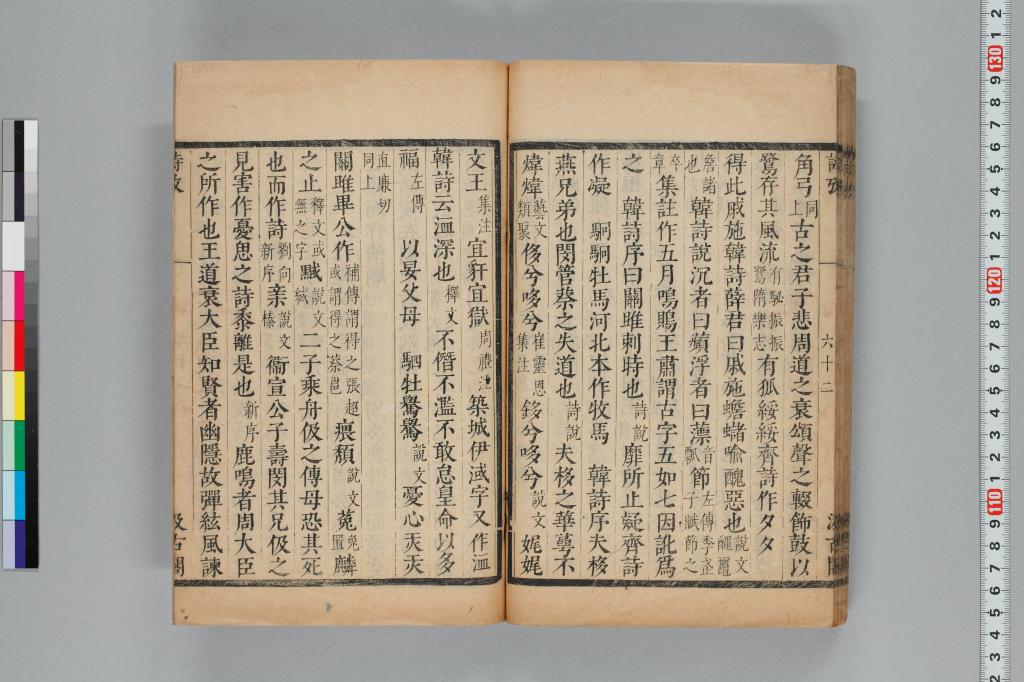 角弓同上古之君子悲周道之衰頌聲之輟飾鼓以
鷺存其風流有駜振振鷺隋樂志有狐綏綏齊詩作夊夊
得此戚施韓詩薛君曰戚施蟾蜍喻醜惡也說文𪓰𪓿
詹諸也韓詩說沉者曰蘋浮者曰藻音瓢節左傳季孟子賦節之
卒章集註作五月鳴鶪王肅謂古字五如七因訛爲
之 韓詩序曰關雎刺時也詩說靡所止疑齊詩
作凝 駉駉牡馬河北本作牧馬 韓詩序夫栘
燕兄弟也閔管蔡之失道也詩說夫栘之華萼不
煒煒藝文類聚侈兮哆兮崔靈恩集注𨥾兮哆兮說文娓娓
六十二
文王集注宜豻宜獄周禮注築城伊淢字又作洫
韓詩云洫深也釋文不僭不濫不敢怠皇命以多
福左傳 以晏父母 駟牡驁驁說文憂心灻灻
直廉切同上
關雎畢公作補傳謂得之張超或謂得之蔡邕㾗頽說文菟兔罝麟
之止釋文或無之字賦說文二子乘舟伋之傳母恐其死
也而作詩劉向新序亲說文榛衞宣公子壽閔其兄伋之
見害作憂思之詩黍離是也新序鹿鳴者周大臣
之所作也王道衰大臣知賢者幽隱故彈絃風諫
詩攷
汲古閣